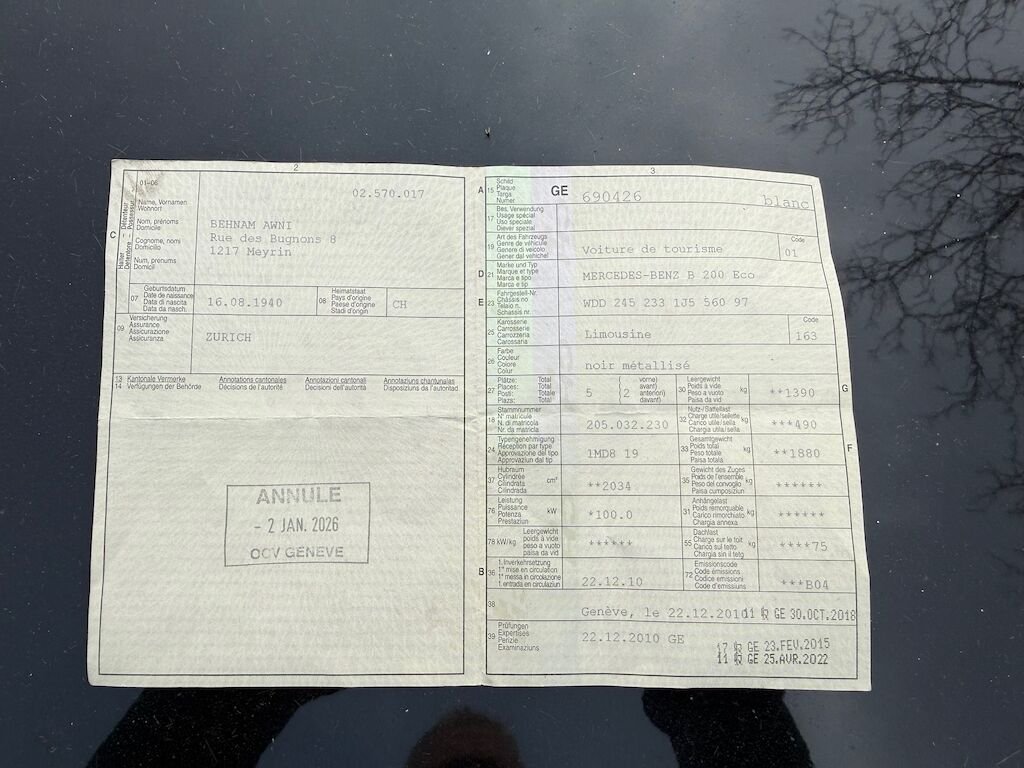 2
02.570.017
C
Halter Détenteur
Detentore Possessur
01-06
Name, Vornamen
Wohnort
Nom, prénoms
Domicile
Cognome, nomi
Domicilio
Num, prenums
Domicil
BEHNAM AWNI
Rue des Bugnons 8
1217 Meyrin
07
Geburtsdatum
Date de naissance
Data di nascita
Data da nasch.
16.08.1940
08
Heimatstaat
Pays d'origine
Paese d'origine
Stadi d'origin
CH
09
Versicherung
Assurance
Assicurazione
Assicuranza
ZURICH
13 Kantonale Vermerke Annotations cantonales Annotazioni cantonali Annotaziuns chantunalas
14 Verfügungen der Behörde Décisions de l'autorité Decisioni dell'autorità Disposiziuns da l'autoritad
ANNULE
- 2 JAN. 2026
OCV GENEVE
3
A 15
Schild
Plaque
Targa
Numer
GE 690426 blanc
17
Bes. Verwendung
Usage spécial
Uso speciale
Diever spezial
19
Art des Fahrzeugs
Genre de véhicule
Genere di veicolo
Gener dal vehichel
Voiture de tourisme
Code
01
D 21
Marke und Typ
Marque et type
Marca e tipo
Marca e tip
MERCEDES-BENZ B 200 Eco
E 23
Fahrgestell-Nr.
Châssis no
Telaio n.
Schassis nr.
WDD 245 233 1J5 560 97
25
Karosserie
Carrosserie
Carrozzeria
Carossaria
Limousine
Code
163
26
Farbe
Couleur
Colore
Colur
noir métallisé
27
Plätze: Total
Places: Total
Posti: Totale
Plazs: Total
5 (2
vorne)
avant)
anteriori)
davant)
30
Leergewicht
Poids à vide
Peso a vuoto
Paisa da vid
kg
**1390
G
18
Stammnummer
N° matricule
N. di matricola
Nr. da matricla
205.032.230
32
Nutz-/Sattellast
Charge utile/sellette
Carico utile/sella
Chargia utila/sella
kg
***490
24
Typengenehmigung
Réception par type
Approvazione del tipo
Approvaziun dal tip
1MD8 19
33
Gesamtgewicht
Poids total
Peso totale
Paisa totala
kg
**1880
F
37
Hubraum
Cylindrée
Cilindrata
Cilindrada
cm³
**2034
35
Gewicht des Zuges
Poids de l'ensemble
Peso del convoglio
Paisa cumposiziun
kg
******
76
Leistung
Puissance
Potenza
Prestaziun
kW
*100.0
31
Anhängelast
Poids remorquable
Carico rimorchiato
Chargia annexa
kg
******
78 kW/kg
Leergewicht
poids à vide
peso a vuoto
paisa da vid
******
55
Dachlast
Charge sur le toit
Carico sul tetto
Chargia sin il tetg
kg
****75
B 36
1. Inverkehrsetzung
1re mise en circulation
1a messa in circolazione
1. entrada en circulaziun
22.12.10
72
Emissionscode
Code émissions
Codice emissioni
Code d'emissiuns
***B04
38
Genève, le 22.12.2010
11 GE 30.OCT.2018
39
Prüfungen
Expertises
Perizie
Examinaziuns
22.12.2010 GE
17 GE 23.FEV.2015
11 GE 25.AVR.2022